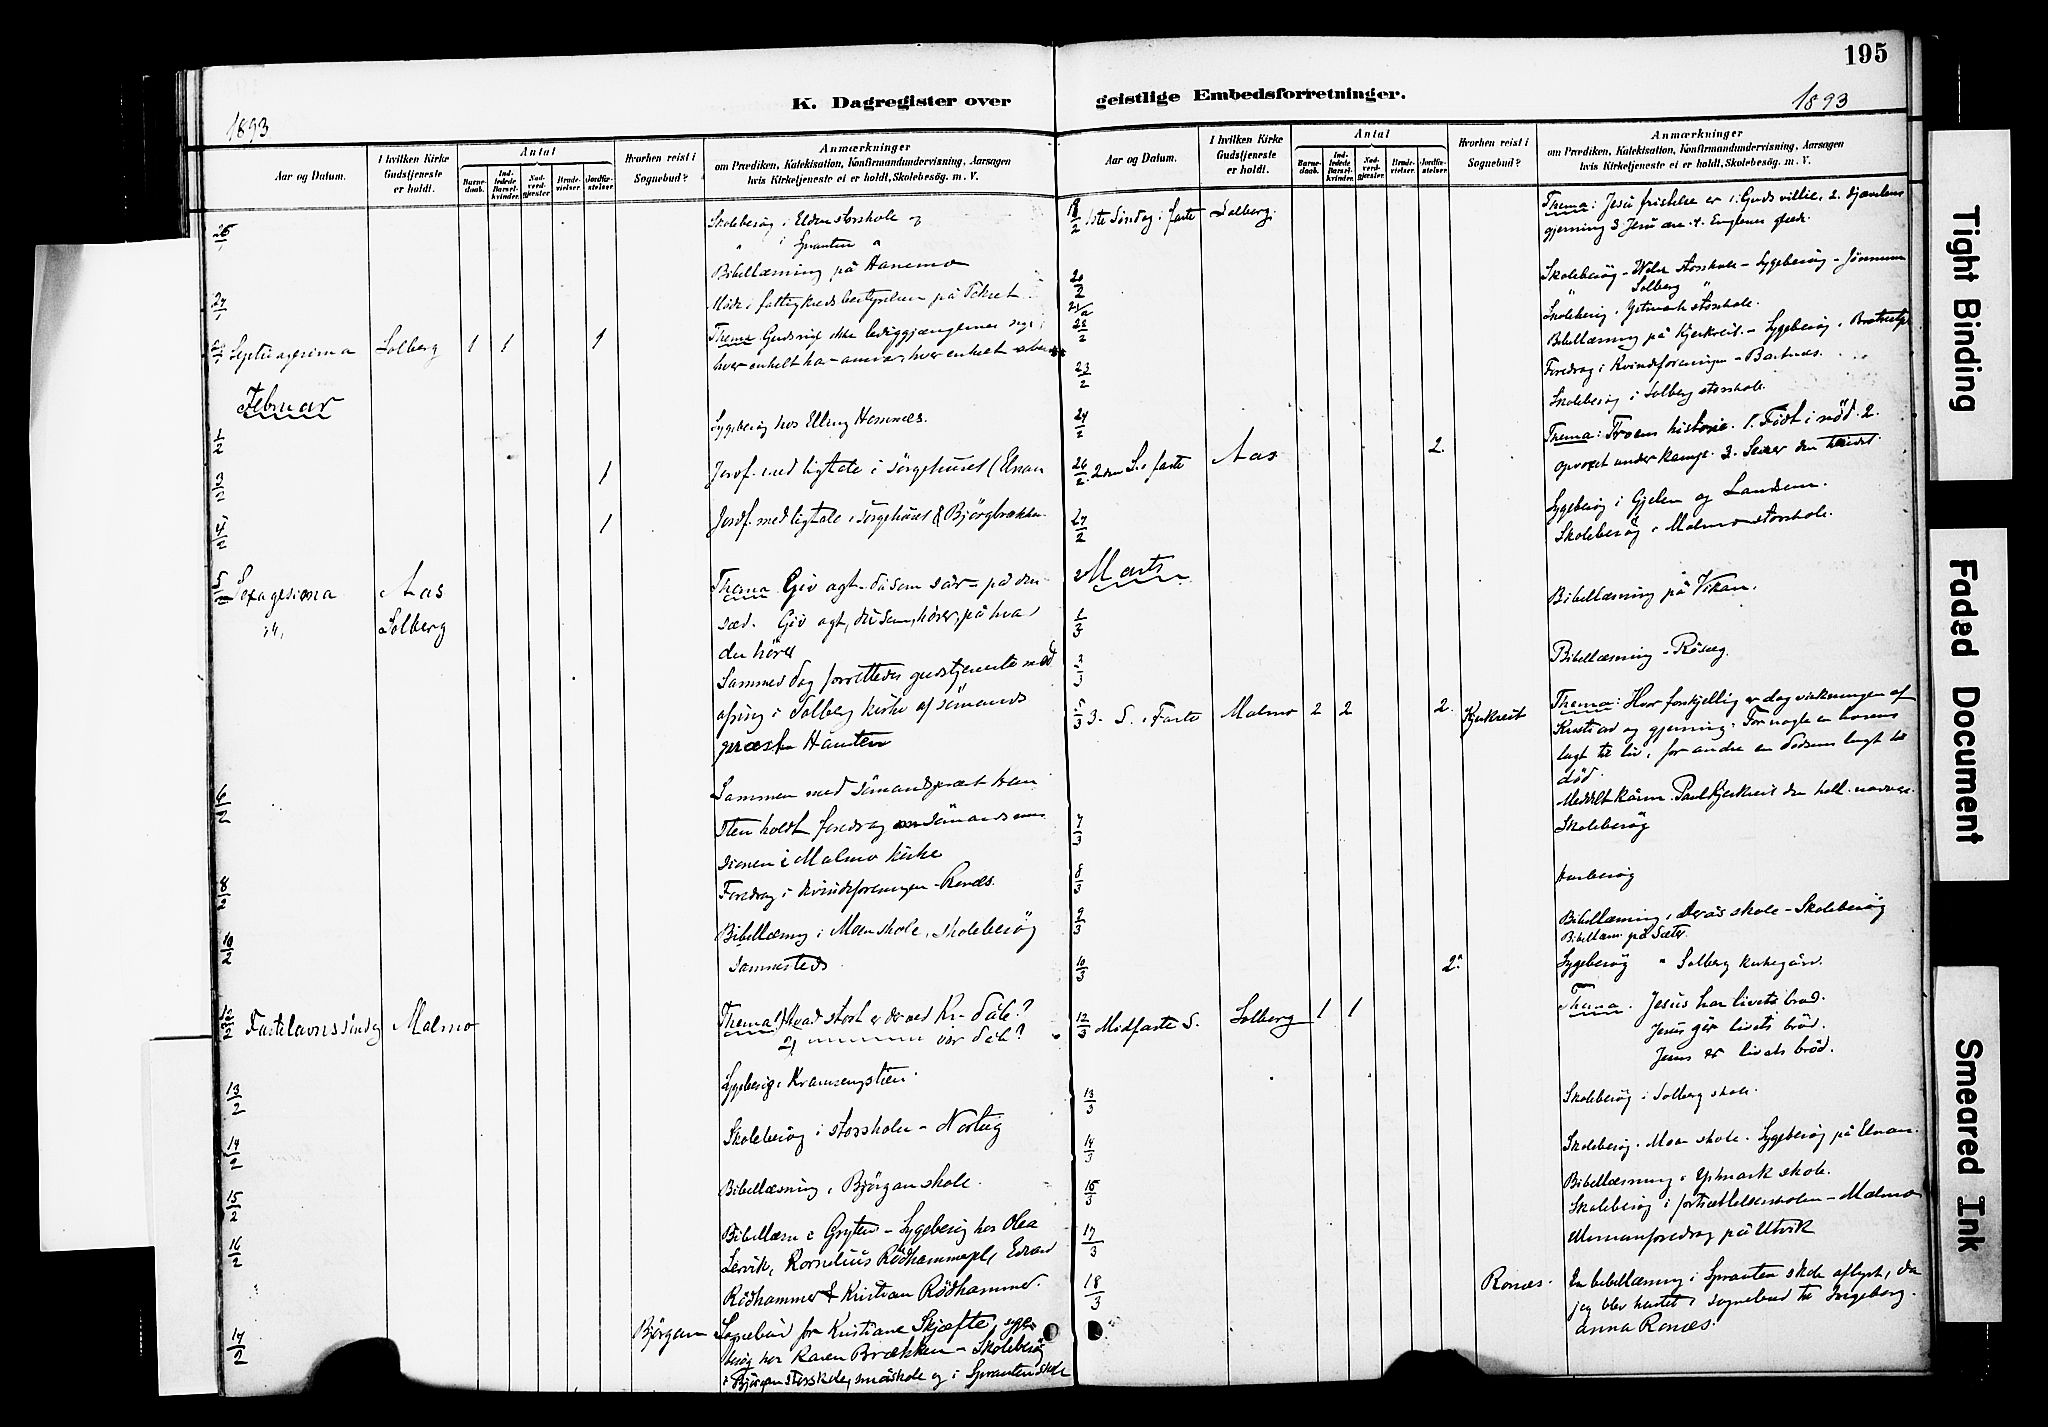 195
K. Dagregister over geistlige Embedsforretninger.
1893
1893
Aar og Datum.
I hvilken Kirke Gudstjeneste er holdt.
Antal
Barnedaab.
Indledede Barselkvinder.
Nadverdgjester
Brudevielser
Jordfæstelser
Hvorhen reist i Sognebud?
Anmærkninger
om Prædiken, Katekisation, Konfirmandundervisning, Aarsagen
hvis Kirketjeneste ei er holdt, Skolebesøg. m. V.
Skolebesøg i Elden storskole og
" i Spranten "
Bibellæsning på Hanemo
Møde i fattigkredsbestyrelsen på
Septuagesima Solberg 1 1 1 Thema Gudsrig ikke lediggjængernes rige,
hver enkelt har ansvar, hver enkelt
Februar
Sygebesøg hos Elling Hennæs.
1 Jordf. med ligtale i sørgehuset (Elnan
1 Jordf. med ligtale i sørgehuset (Bjørgbrækken
Sexagesima Aas Thema Giv agt du som sår på den
" Solberg sæd. Giv agt, du som hører, på hvad
du hører
Sammes dag forrettedes gudstjeneste med
ofring i Solberg kirke af sømands
præst Hansten
Sammen med sømandspræst Han
sten holdt foredrag om sømandsmis
sionen i Malmo kirke
8/2 Foredrag i kvindeforeningen - Renæs.
10/2 Bibellæsning i Moen skole, skolebesøg
sammesteds
12/2 Fastelavnssøndag Malmo Thema 1) Hvad stort er der ved Kr. dåb?
2) " " " " vor dåb?
13/2 Sygebesøg i
14/2 Skolebesøg i storskolen - Nortug
15/2 Bibellæsning i Bjørgan skole.
16/2 Bibellæsn i Gryten - Sygebesøg hos Olea
Lervik, Kornelius Rødhammerpl, Edvard
Rødhammer & Kristian Rødhammer.
17/2 Bjørgan Sognebud for Kristiane Skjefte, syge-
besøg hos Karen Brækken - Skolebesøg
i Bjørgan storskole, småskole og i Spranten skole
Aar og Datum.
I hvilken Kirke Gudstjeneste er holdt.
Antal
Barnedaab.
Indledede Barselkvinder.
Nadverdgjester
Brudevielser
Jordfæstelser
Hvorhen reist i Sognebud?
Anmærkninger
om Prædiken, Katekisation, Konfirmandundervisning, Aarsagen
hvis Kirketjeneste ei er holdt, Skolebesøg. m. V.
1ste Søndag i faste Solberg. Thema: Jesu fristelse er 1. Guds villie, 2. djævelens
gjerning 3 Jesu ære 4. Englenes glæde.
20/2 Skolebesøg - storskole - Sygebesøg -
" Solberg "
21/2 Skolebesøg i storskole.
22/2 Bibellæsning på Kjerkreit. - Sygebesøg i
23/2 Foredrag i Kvindeforeningen - Bartnæs.
24/2 Skolebesøg i Solberg storskole.
26/2 2den S. i faste Aas 2. Thema: Troens historie. 1. Født i nød. 2.
opvoxet under kamp. 3. Seirer den
27/2 Sygebesøg i Gjelen og Landsem.
Skolebesøg i Malmo storskole.
Marts
1/3 Bibellæsning på Vikan.
3/3 Bibellæsning - Røseg.
5/3 3. S. i Faste Malmo 2 2 2. Kjerkreit Thema: Hvor forskjellig er dog virkningen af
Kristi ord og gjerning: For nogle en livsens
lugt til liv, for andre en dødsens lugt til
død.
Meddelt Paul Kjerkreit den hell. nadver.
7/3 Skolebesøg
8/3 Husbesøg
9/3 Bibellæsning i Derås skole - Skolebesøg
Bibellæsn på Sæter.
10/3 2. Sygebesøg " Solberg kirkegård.
12/3 Midfaste S. Solberg 1 1 Thema. Jesus har livets brød.
Jesus gir livets brød.
Jesus er livets brød.
13/3 Skolebesøg i Solberg skole.
14/3 Skolebesøg i Moen skole. Sygebesøg på Elnan.
15/3 Bibellæsning i skole.
Skolebesøg i fortsættelsesskolen - Malmo
17/3 Missionsforedrag på Utvik
18/3 Renæs. En bibellæsning i Spranten skole aflyst, da
jeg blev hentet i sognebud til Ingeborg
Anna Renæs.
Tight Binding
Faded Document
Smeared Ink